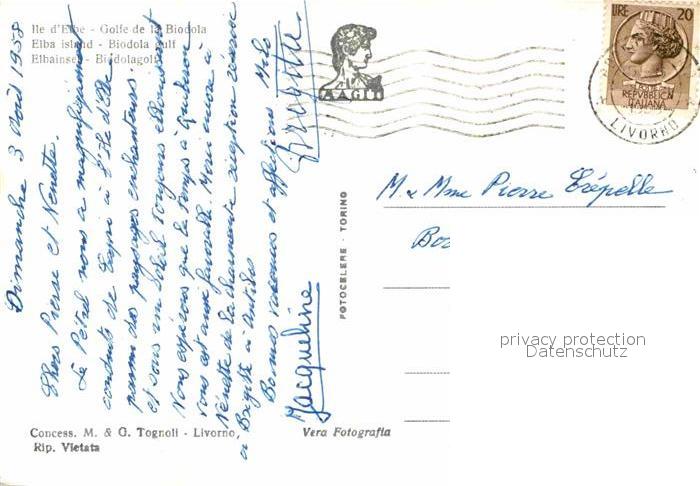 Ile d'Elbe - Golfe de la Biodola
Elba island - Biodola gulf
Elbainsel - Biodolagolf
Dimanche 3 Août 1958
Chers Pierre et Nénette.
Le Pétrel nous a magnifiquement
conduits de Capri à l'Ile d'Elbe
parmi des paysages enchanteurs
et sous un soleil toujours éblouissant
Nous espérons que le temps à
vous est aussi favorable. Merci à
Nénette de la charmante réception réservée
à Brigitte à Antibes
Bonnes vacances et affection Milo
Jacqueline
Brigitte
Concess. M. & G. Tognoli - Livorno
Rip. Vietata
Vera Fotografia
FOTOCELERE - TORINO
LIRE 20
POSTE
REPVBBLICA
ITALIANA
LIVORNO
M. & Mme Pierre Trépelle
privacy protection
Datenschutz